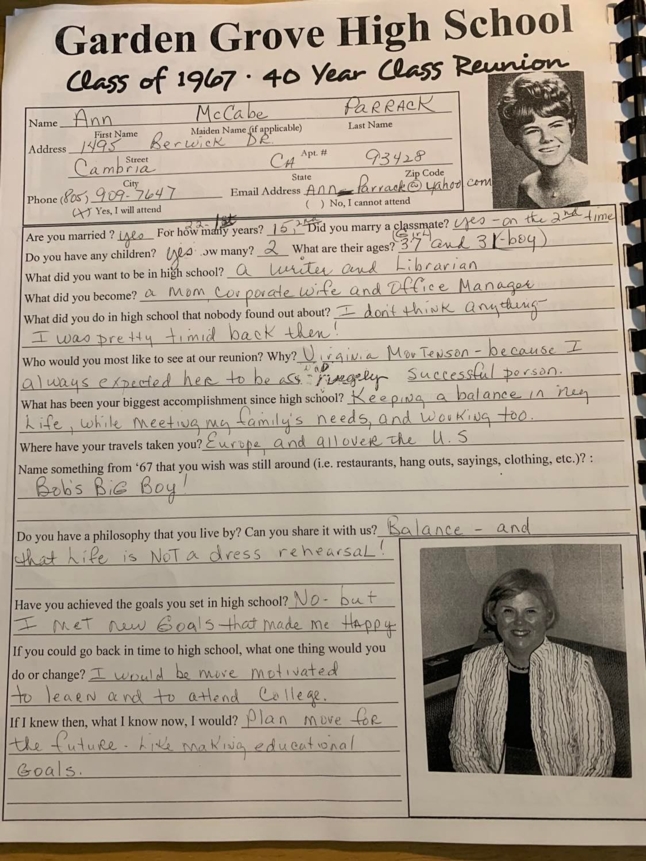 Garden Grove High School
Class of 1967 · 40 Year Class Reunion
Name Ann McCabe PARRACK
First Name Maiden Name (if applicable) Last Name
Address 1495 Berwick DR
Street Apt. #
Cambria CA 93428
City State Zip Code
Phone (805) 909-7647 Email Address Ann_Parrack@yahoo.com
(X) Yes, I will attend ( ) No, I cannot attend
Are you married? yes For how many years? 22-1st 15 2nd Did you marry a classmate? yes - on the 2nd time
Do you have any children? yes ow many? 2 What are their ages? 37 (Girl) and 31 (-boy)
What did you want to be in high school? a writer and Librarian
What did you become? a Mom, Corporate Wife and Office Manager
What did you do in high school that nobody found out about? I don't think anything
I was pretty timid back then!
Who would you most like to see at our reunion? Why? Virginia Mortenson - because I
always expected her to be successful person.
What has been your biggest accomplishment since high school? Keeping a balance in my
Life, while meeting my family's needs, and working too.
Where have your travels taken you? Europe, and all over the U.S
Name something from '67 that you wish was still around (i.e. restaurants, hang outs, sayings, clothing, etc.)? :
Bob's BiG Boy!
Do you have a philosophy that you live by? Can you share it with us? Balance - and
that Life is NOT a dress rehearsal!
Have you achieved the goals you set in high school? No - but
I met new Goals that made me Happy
If you could go back in time to high school, what one thing would you
do or change? I would be more motivated
to learn and to attend College.
If I knew then, what I know now, I would? Plan more for
the future. Like making educational
Goals.